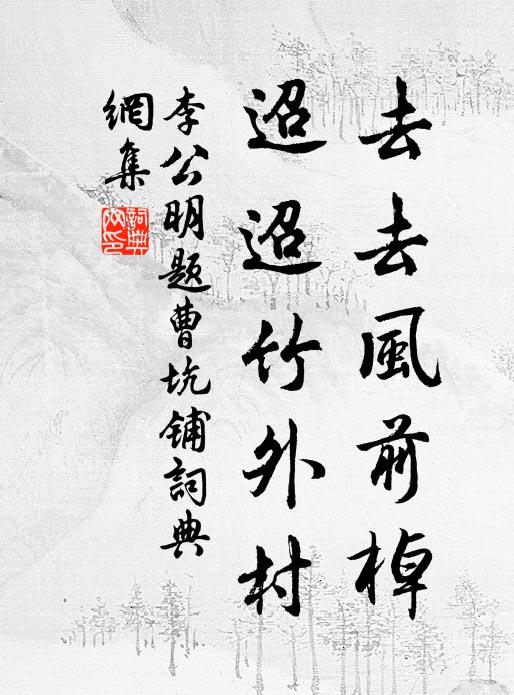 去去風前棹
迢迢竹外村
李公明題曹坑鋪詞典
網集
詞典
网印